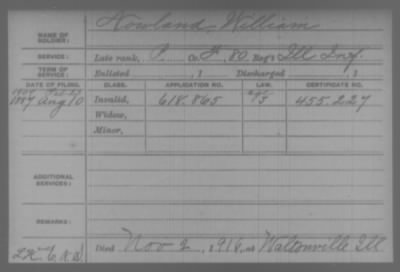 NAME OF SOLDIER: Nowland, William
SERVICE: Late rank, P. Co. F, 80 Reg't Ill Inf.
TERM OF SERVICE: Enlisted , 1 Discharged , 1
DATE OF FILING. CLASS. APPLICATION NO. LAW. CERTIFICATE NO.
1887 Aug 10 Invalid, 618.865 455.227
Widow,
Minor,
ADDITIONAL SERVICES:
REMARKS:
Died Nov 2, 1916, at Waltonville Ill